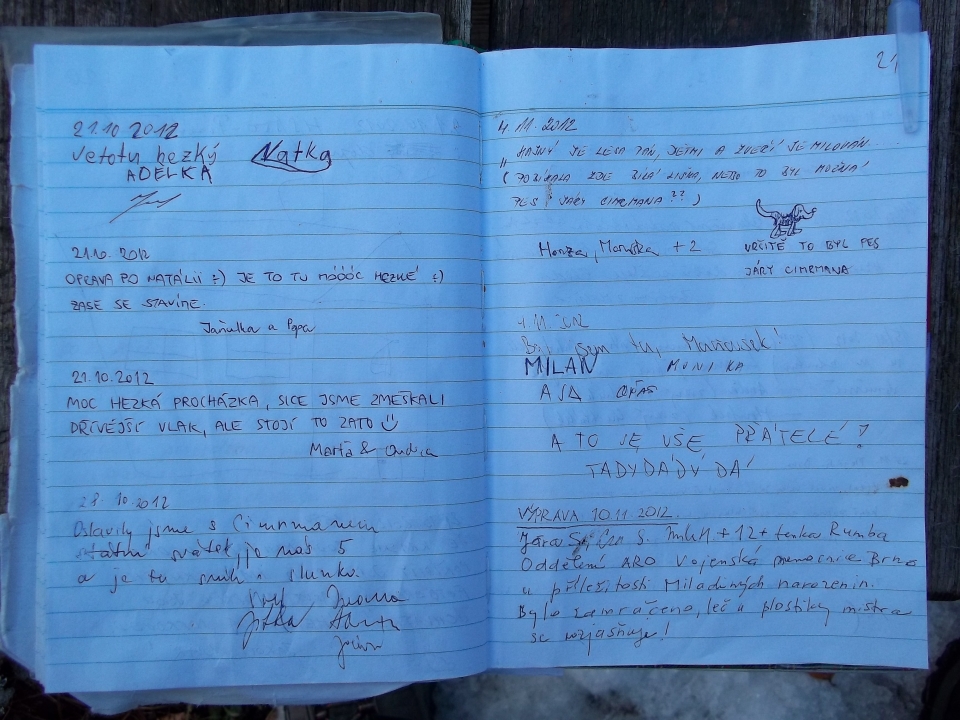 21.10 2012
Je to tu hezký Natka
ADÉLKA
21.10. 2012
OPRAVA PO NATÁLII :) JE TO TU MÓÓÓC HEZKÉ :)
ZASE SE STAVÍME.
Jaňulka a Pepa
21.10.2012
MOC HEZKÁ PROCHÁZKA, SICE JSME ZMEŠKALI
DŘÍVĚJŠÍ VLAK, ALE STOJÍ TO ZATO
Marťa &
28. 10. 2012
Oslavily jsme s Cimrmanem
státní svátek, je nás 5
a je tu sníh i slunko.
Jitka
21
4. 11. 2012
„ HAJNÝ JE LESA PÁN, DĚTMI A ZVĚŘÍ JE MILOVÁN.
( POBÍHALA ZDE BÍLÁ LIŠKA, NEBO TO BYL MOŽNÁ
PES JÁRY CIMRMANA ?? )
Honza, Maruška + 2
URČITĚ TO BYL PES
JÁRY CIMRMANA
jsem tu,
MILAN MONIKA
AJA
A TO JE VŠE PŘÁTELÉ !
TADYDÁDÝ DÁ
VÝPRAVA 10.11.2012.
Jára + 12 + fenka Rumba
Oddělení ARO Vojenská nemocnice Brno
u příležitosti Miladiných narozenin.
Bylo zamračeno, leč u plastiky mistra
se vyjasňuje!